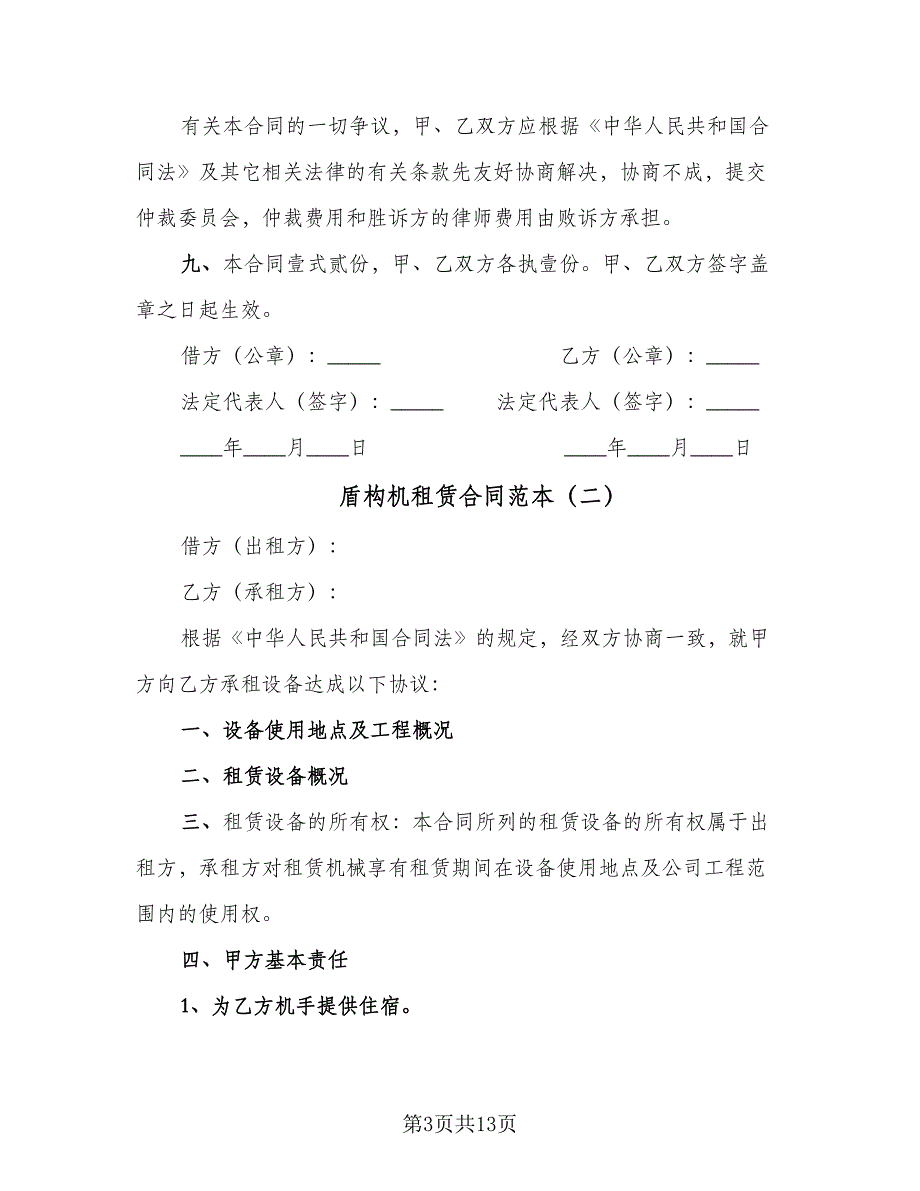 有关本合同的一切争议，甲、乙双方应根据《中华人民共和国合
同法》及其它相关法律的有关条款先友好协商解决，协商不成，提交
仲裁委员会，仲裁费用和胜诉方的律师费用由败诉方承担。
九、本合同壹式贰份，甲、乙双方各执壹份。甲、乙双方签字盖
章之日起生效。
借方（公章）：_____ 乙方（公章）：_____
法定代表人（签字）：_____ 法定代表人（签字）：_____
____年____月____日 ____年____月____日
盾构机租赁合同范本（二）
借方（出租方）：
乙方（承租方）：
根据《中华人民共和国合同法》的规定，经双方协商一致，就甲
方向乙方承租设备达成以下协议：
一、设备使用地点及工程概况
二、租赁设备概况
三、租赁设备的所有权：本合同所列的租赁设备的所有权属于出
租方，承租方对租赁机械享有租赁期间在设备使用地点及公司工程范
围内的使用权。
四、甲方基本责任
1、为乙方机手提供住宿。
第3页共13页